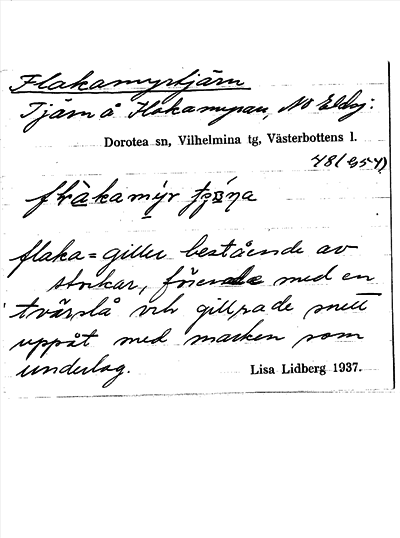 Flakamyrtjärn
Tjärn å Flakamyran, NO Elsj:
Dorotea sn, Vilhelmina tg, Västerbottens l.
flaka = giller bestående av
stockar, förenade med en
tvärslå och gillrade snett
uppåt med marken som
underlag.
Lisa Lidberg 1937.